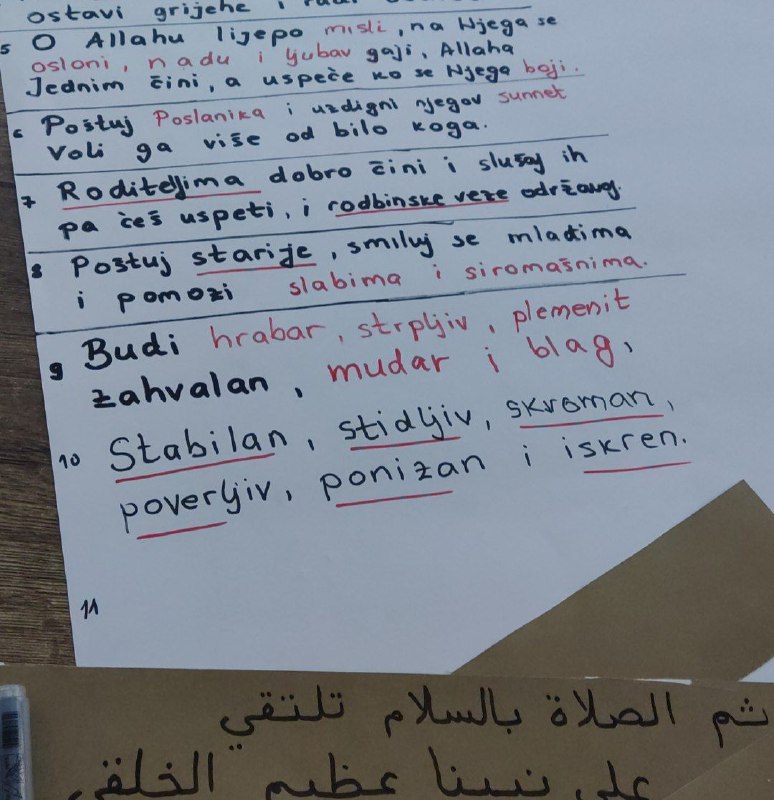 ostavi grijehe i
5 O Allahu lijepo misli, na Njega se
osloni, nadu i ljubav gaji, Allaha
Jednim čini, a uspeče ko se Njega boji.
6 Poštuj Poslanika i uzdigni njegov sunnet
voli ga više od bilo koga.
7 Roditeljima dobro čini i slušaj ih
pa ćeš uspeti, i rodbinske veze održavaj.
8 Poštuj starije, smiluj se mlađima
i pomozi slabima i siromašnima.
9 Budi hrabar, strpljiv, plemenit
zahvalan, mudar i blag,
10 Stabilan, stidljiv, skroman,
poverljiv, ponizan i iskren.
11
ثم الصلاة بالسلام تلتقي
على نبينا عظيم الخلق